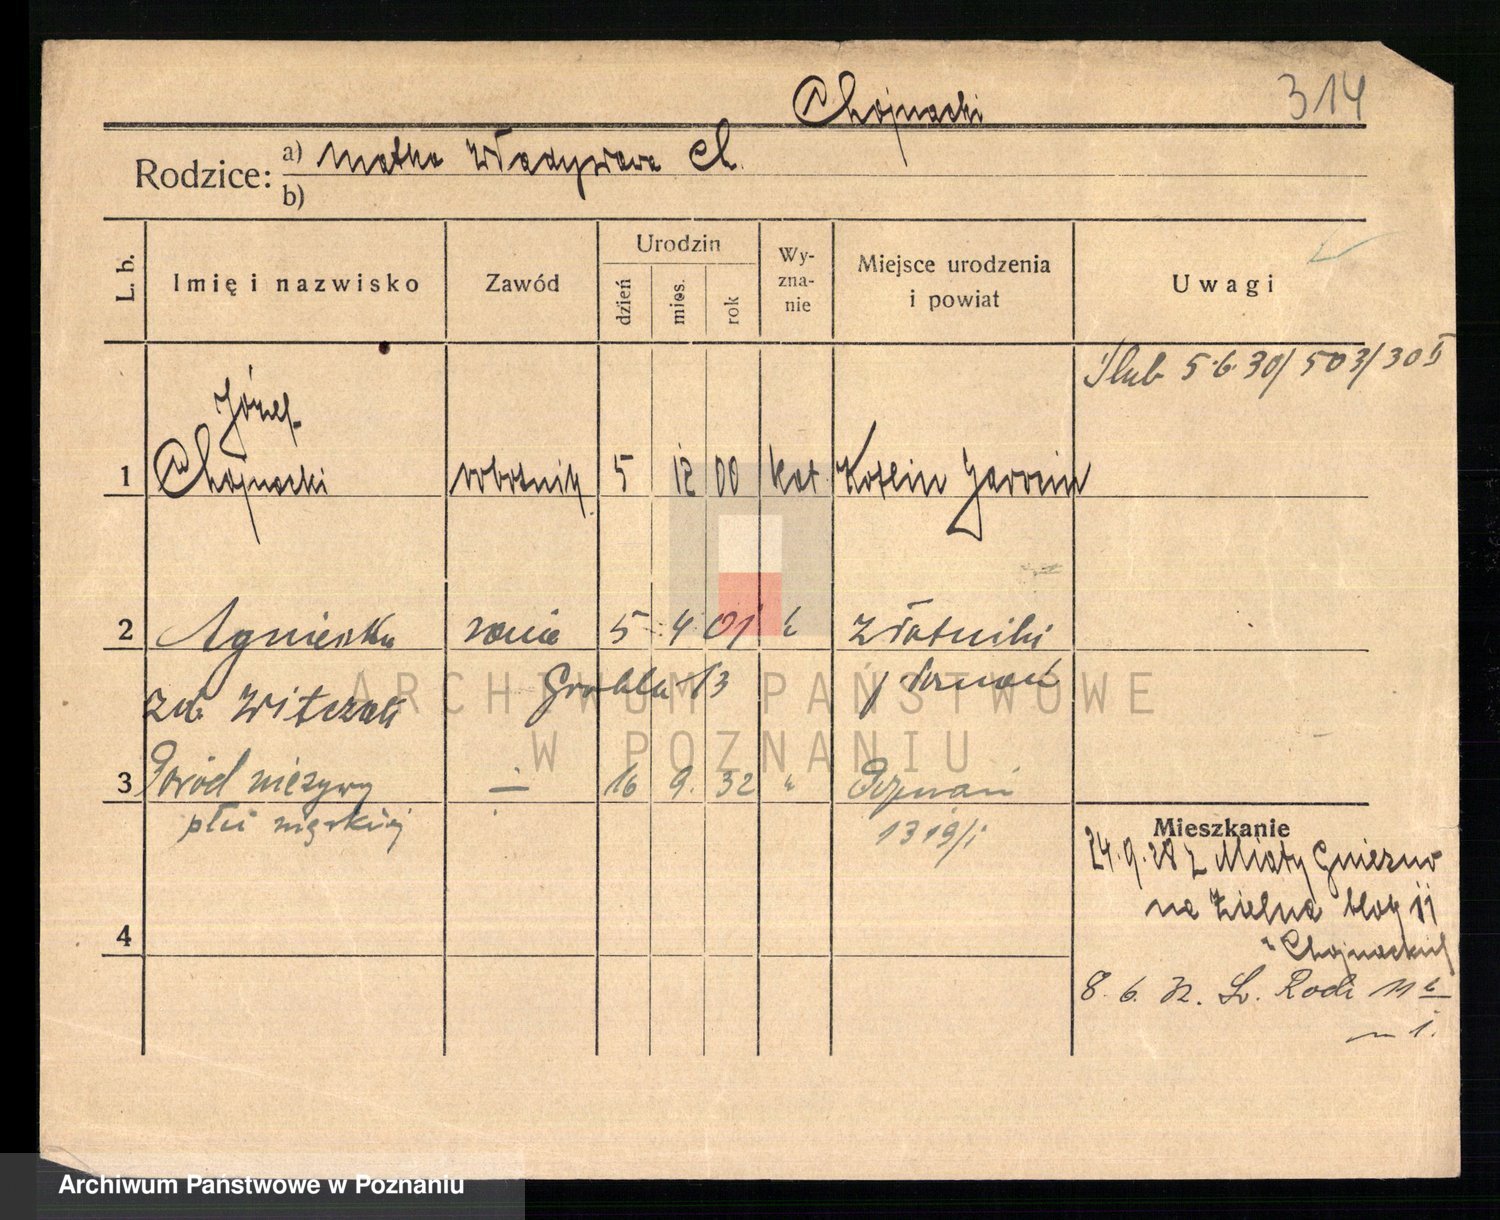 Chojnacki
314
Rodzice: a) Matka Władysława Ch.
b)
L. b.
Imię i nazwisko
Zawód
Urodzin
dzień
mies.
rok
Wy-
zna-
nie
Miejsce urodzenia
i powiat
Uwagi
Ślub 5.6.30/503/30
Józef
1 Chojnacki robotnik 5 12 00 kat Kotlin Jarocin
2 Agnieszka żona 5 4 01 Złotniki
Grobla 13 p Poznań
zd. Witczak
3 Poród nieżywy — 16 9. 32 " Poznań
płci męskiej 1319/
4
Mieszkanie
24.9.28 z Miaty Gniezno
na Zielna blok 11
Chojnackich
8. 6. 32. Rocha 11
1.
ARCHIWUM PAŃSTWOWE
W POZNANIU
Archiwum Państwowe w Poznaniu